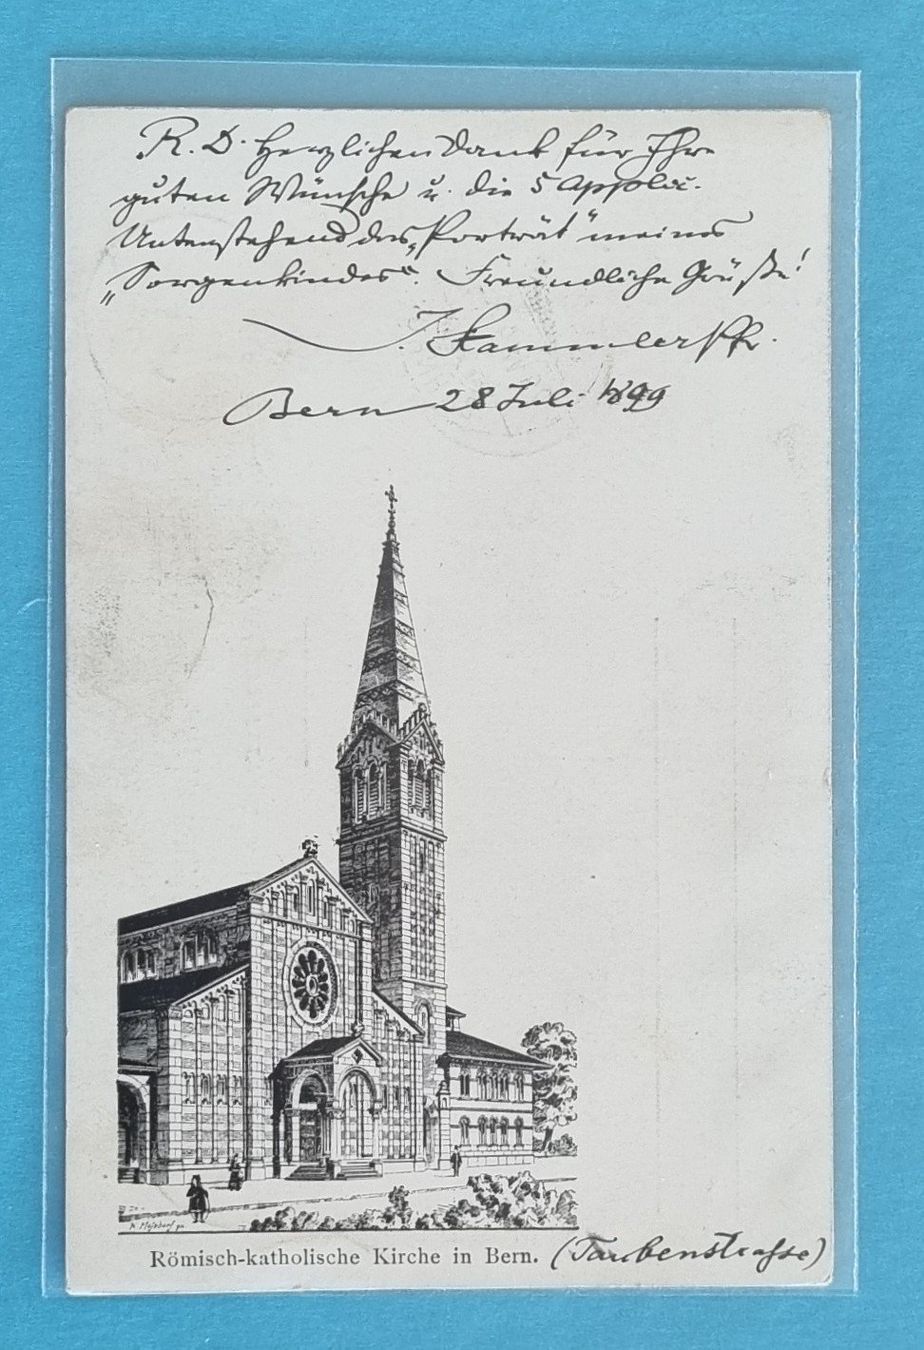 R. D. Herzlichen Dank für Ihre
guten Wünsche u. die 5
Untenstehend das „Porträt" meines
„Sorgenkindes". Freundliche Grüße!
J. Stammler Pfr.
Bern 28 Juli 1899
Römisch-katholische Kirche in Bern. (Taubenstrasse)